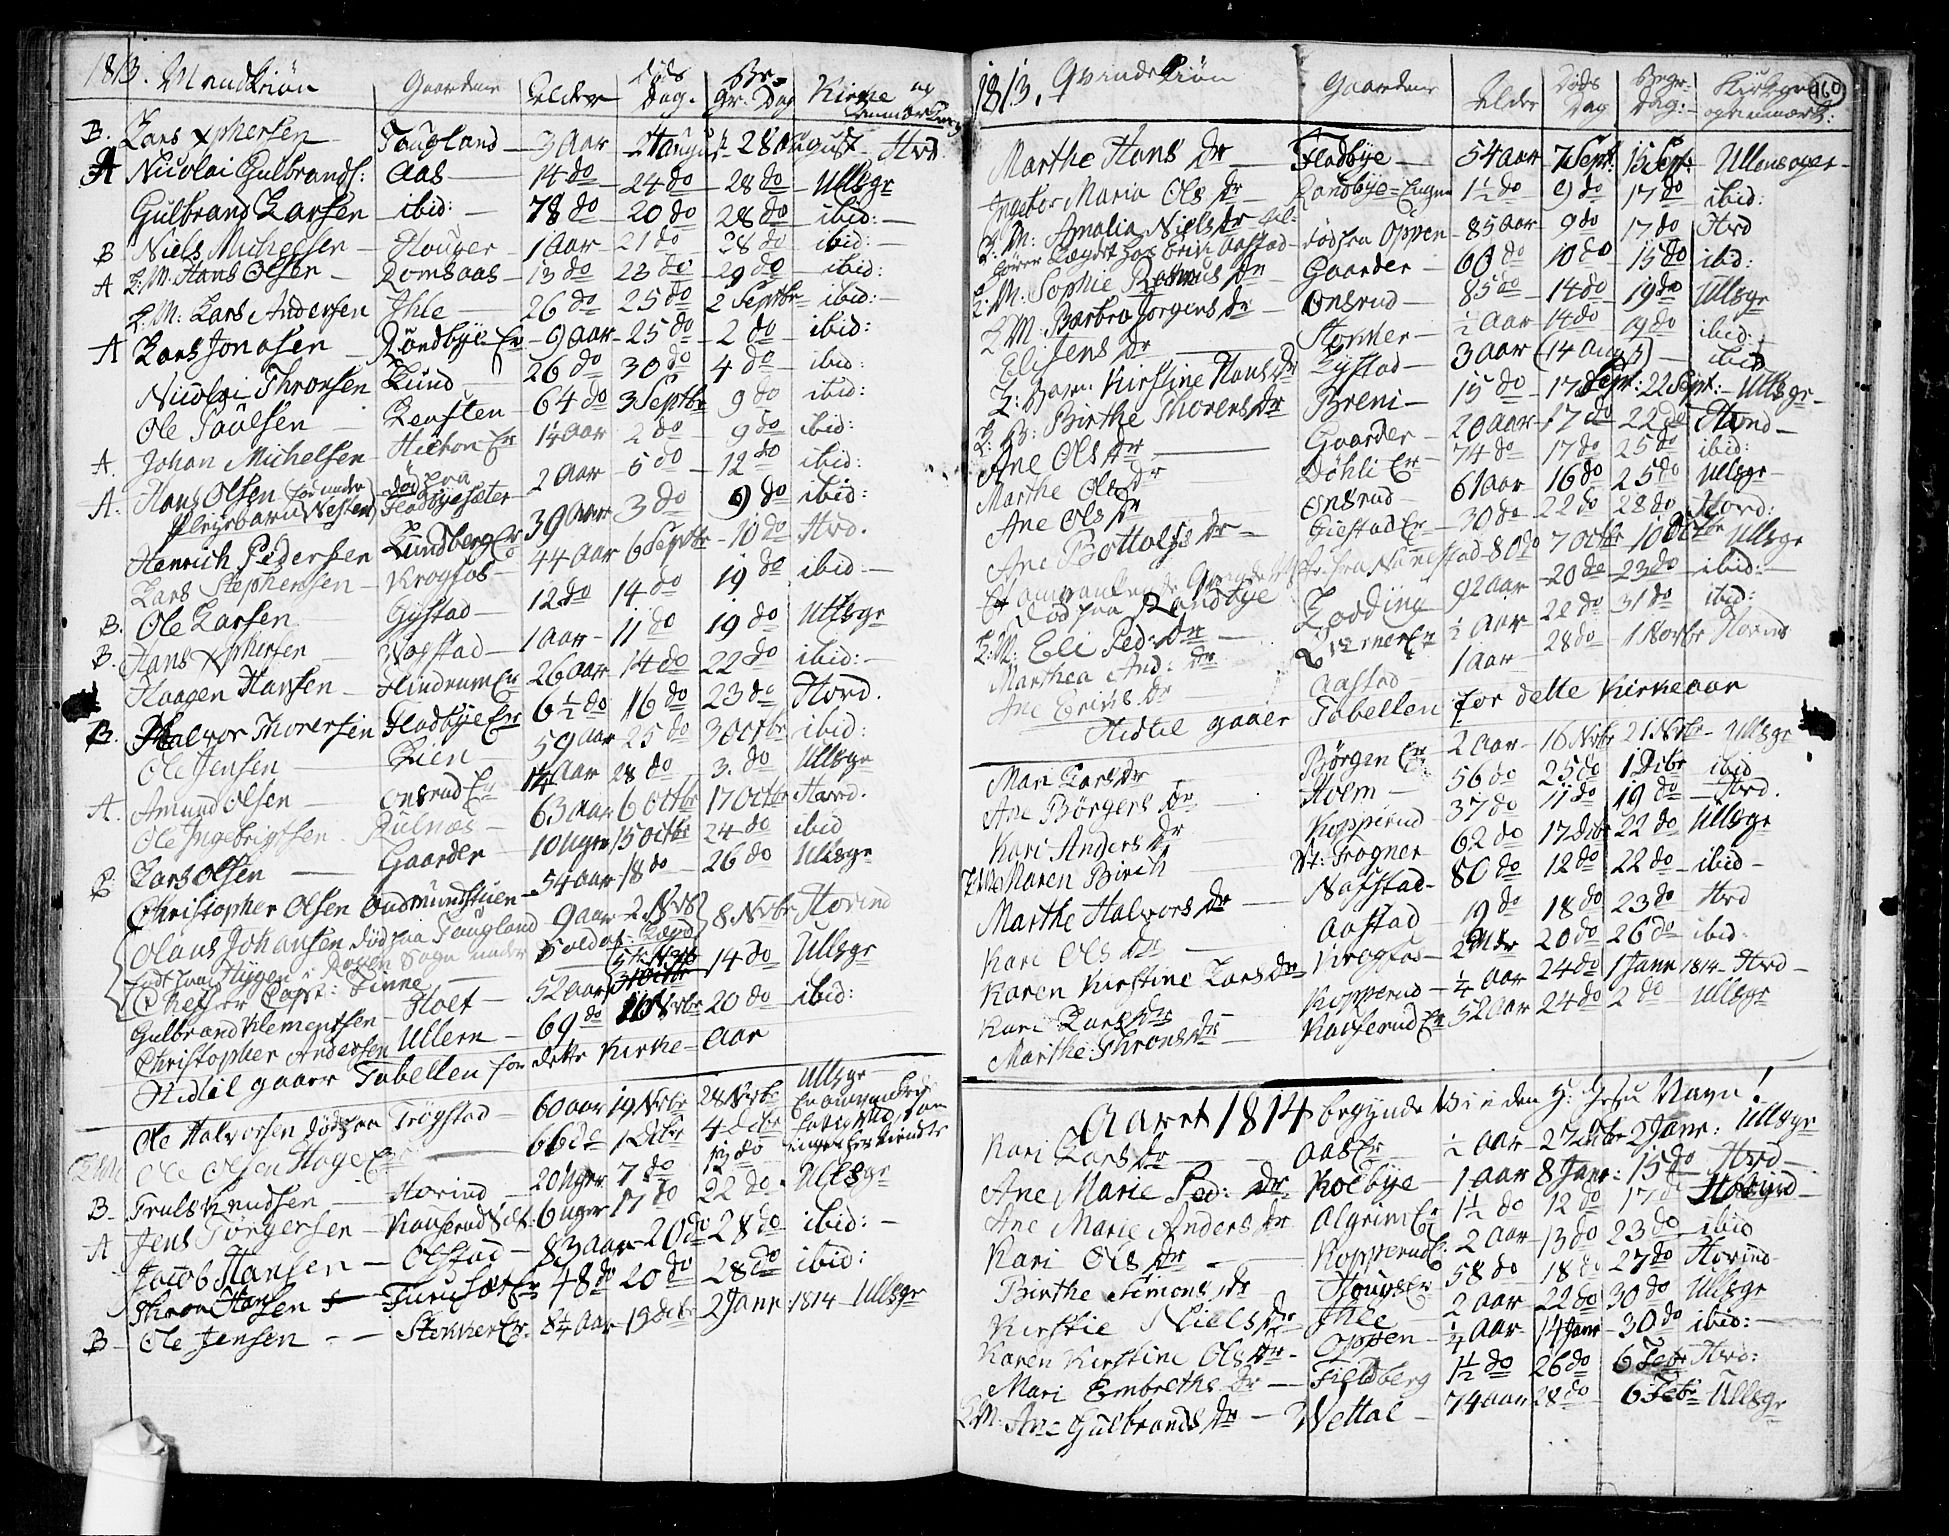 1813. Mandkiøn Gaardene Alder Døds Dag. Be- gr: Dag Kirke og Anmærkning
B. Lars Xphersen Taugland 3 Aar 24 August 28 August Hvd.
A Nicolai Gulbrands: Aas 14 do 24 do 28 do Ullsgr
Gulbrand Larsen ibid: 78 do 20 do 28 do ibid:
B Niels Michelsen Houger 1 Aar 21 do 28 do ibid:
A L: M: Hans Olsen Romsaas 13 do 23 do 29 do ibid:
L: M: Lars Andersen Ihle 26 do 25 do 2 Septbr ibid:
A Lars Jonasen Røndbye Er 9 Aar 25 do 2 do ibid:
Nicolai Thronsen Lund 26 do 30 do 4 do ibid:
Ole Paulsen 64 do 3 Septbr 9 do ibid:
A. Johan Michelsen Er 14 Aar 2 do 9 do ibid:
A. Hans Olsen død paa 2 Aar 5 do 12 do ibid:
Pleiebarn Fladbyesæter 3 do 9 do ibid:
Henrich Pedersen Lundberg Er 39 Aar 6 Septbr 10 do Hvd.
Lars Stephensen Krogfos 44 Aar 14 do 19 do ibid:
B. Ole Larsen Gystad 12 do 11 do 19 do Ullsgr
B. Hans Xphersen Wogstad 1 Aar 14 do 22 do ibid:
Haagen Hansen Hindrum Er 26 Aar 16 do 23 do Hovd.
B. Halvor Thorersen Fladbye Er 6½ do 25 do 3 Octbr ibid:
Ole Jensen Lien 59 Aar 28 do 3. do Ullsgr
A. Amund Olsen Onsrud Er 14 Aar 6 Octbr 17 Octbr Hovd.
Ole Ingebrigtsen Rulnæs 63 Aar 15 Octbr 24 do ibid
B Lars Olsen Gaarder 10 Uger 18 do 26 do Ullsgr
Christopher Olsen Gudmundstuen 54 Aar 2 Nvbr 8 Nvbr Hovind
Olaus Johansen død paa Taugland 9 Aar
født paa Hygen i Røgen Sogn under Soldat
Capt: Finne 14 do Ullsgr
Gulbrand Klementsen Holt 52 Aar 20 do ibid:
Christopher Andersen Ullern 69 do
Hidtil gaaer Tabellen for dette Kirke-Aar
Ole Halvorsen død paa Trøgstad 60 Aar 19 Nvbr 28 Nvbr Ullsgr
L: M: Ole Olsen Hage Er 66 do 1 Dcbr 4 Dcbr
B. Truls Knudsen Hovind 20 Uger 7 do 12 do
A Jens Jørgersen Kauserud 6 Uger 17 do 22 do Ullsgr
Jacob Hansen Olstad 83 Aar 20 do 28 do ibid:
Thron Hansen Furuset Er 48 do 20 do 28 do ibid:
B Ole Jensen Stokker Er 8¼ Aar 19 Dcbr 2 Janr: 1814 Ullsgr
1813. Qvindekiøn Gaardene Alder Døds Dag Begr- Dag: Kirkene og Anmærk:
160
Marthe Hans Dr Fladbye 54 Aar 7 Sept: 15 Sept: Ullensager
Ingebor Maria Ols Dr Randbye=Engen 1½ do 9 do 17 do ibid:
L: M: Amalia Niels Dr død paa Oppen 85 Aar 9 do 17 do Hvd
L: M: Sophie Rasmus Dr Gaarder 60 do 10 do 15 do ibid:
L: M: Barbro Jørgens Dr Onsrud 85 do 14 do 19 do Ullsgr
Eli Jens Dr Stokker ½ Aar 14 do 19 do ibid:
L: Barn: Kirstine Hans Dr Lystad 3 Aar (14 Aug) ibid
L: B: Birthe Thorers Dr Breni 15 do 17 Sept: 22 Sept: Ullsgr
Ane Ols Dr Gaarder 20 Aar 17 do 22 do Hovnd
Marthe Ols Dr Døhli Er 74 do 17 do 25 do ibid:
Ane Ols Dr Onsrud 61 Aar 16 do 25 do Ullsgr
Ane Bottolfs Dr Gjestad Er 30 do 22 do 28 do Hovd:
fra Nannestad 80 do 7 Octbr 10 Octbr Ullsgr
død paa Randbye 20 do 23 do ibid:
L: M: Eli Ped: Dr Løding 92 Aar 22 do 31 do ibid:
Marthea And: Dr Er ½ Aar 28 do 1 Novbr
Ane Erichs Dr Aastad 1 Aar
Hidtil gaaer Tabellen for dette Kirkeaar
Mari Lars Dr Børgen Er 2 Aar 16 Nvbr 21 Nvbr Ullsgr
Ane Børgers Dr Holm 56 do 25 do 1 Dcbr ibid
Kari Anders Dr Kopperud 37 do 11 do 19 do Hvd.
L: M: Maren Birch St: Frogner 62 do 17 Dcbr 22 do Ullsgr
Marthe Halvors Dr Nafstad 80 do 12 do 22 do ibid
Kari Ols Dr Aastad 19 do 18 do 23 do Hvd
Karen Kirstine Lars Dr Krogfos 2 Mdr 20 do 26 do ibid:
Kari Lars Dr Kopperud ¼ Aar 24 do 1 Janr 1814 Hvd
Marthe Throns Dr Kauserud Er 52 Aar 24 do 2 do Ullsgr
Aaret 1814 begyndes i den H: Jesu Navn!
Kari Lars Dr Aas Er ½ Aar 27 Dcbr 2 Janr: Ullsgr
Ane Marie Ped: Dr Kolbye 1 Aar 8 Janr: 15 do Hvd
Ane Marie Anders Dr Algrim Er 1½ do 12 do 17 do Hovind
Kari Ols Dr Kopperud E: 2 Aar 13 do 23 do ibid
Birthe Simons Dr Houg Er 58 do 18 do 27 do Hovind
Kirstie Niels Dr Ihle 2 Aar 22 do 30 do Ullsgr
Karen Kirstine Ols Dr Oppen ¼ Aar 14 Janr 30 do ibid:
Mari Embreths Dr Fieldberg 1½ do 26 do 6 Febr Hvd:
L: M: Ane Gulbrands Dr Wettal 74 Aar 28 do 6 Febr Ullsgr